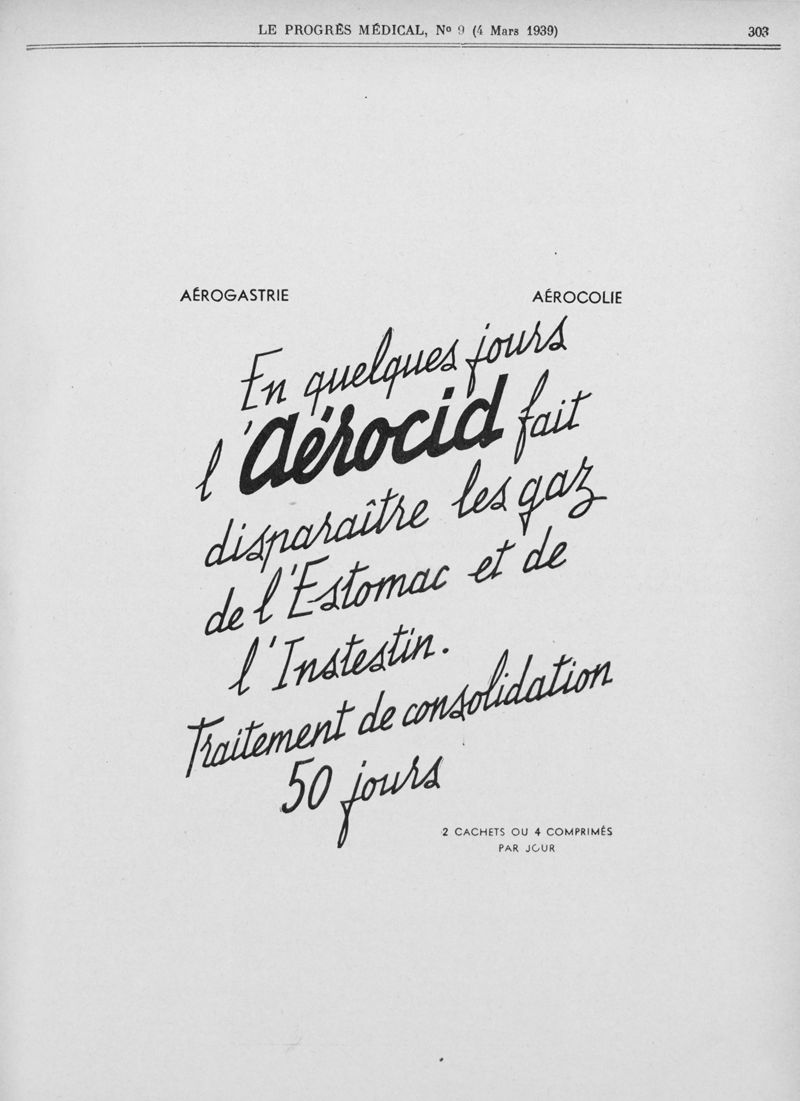 LE PROGRÈS MÉDICAL, No 9 (4 Mars 1939) 303
AÉROGASTRIE AÉROCOLIE
En quelques jours
l'Aérocid fait
disparaître les gaz
de l'Estomac et de
l'Instestin.
Traitement de consolidation
50 jours
2 CACHETS OU 4 COMPRIMÉS
PAR JOUR